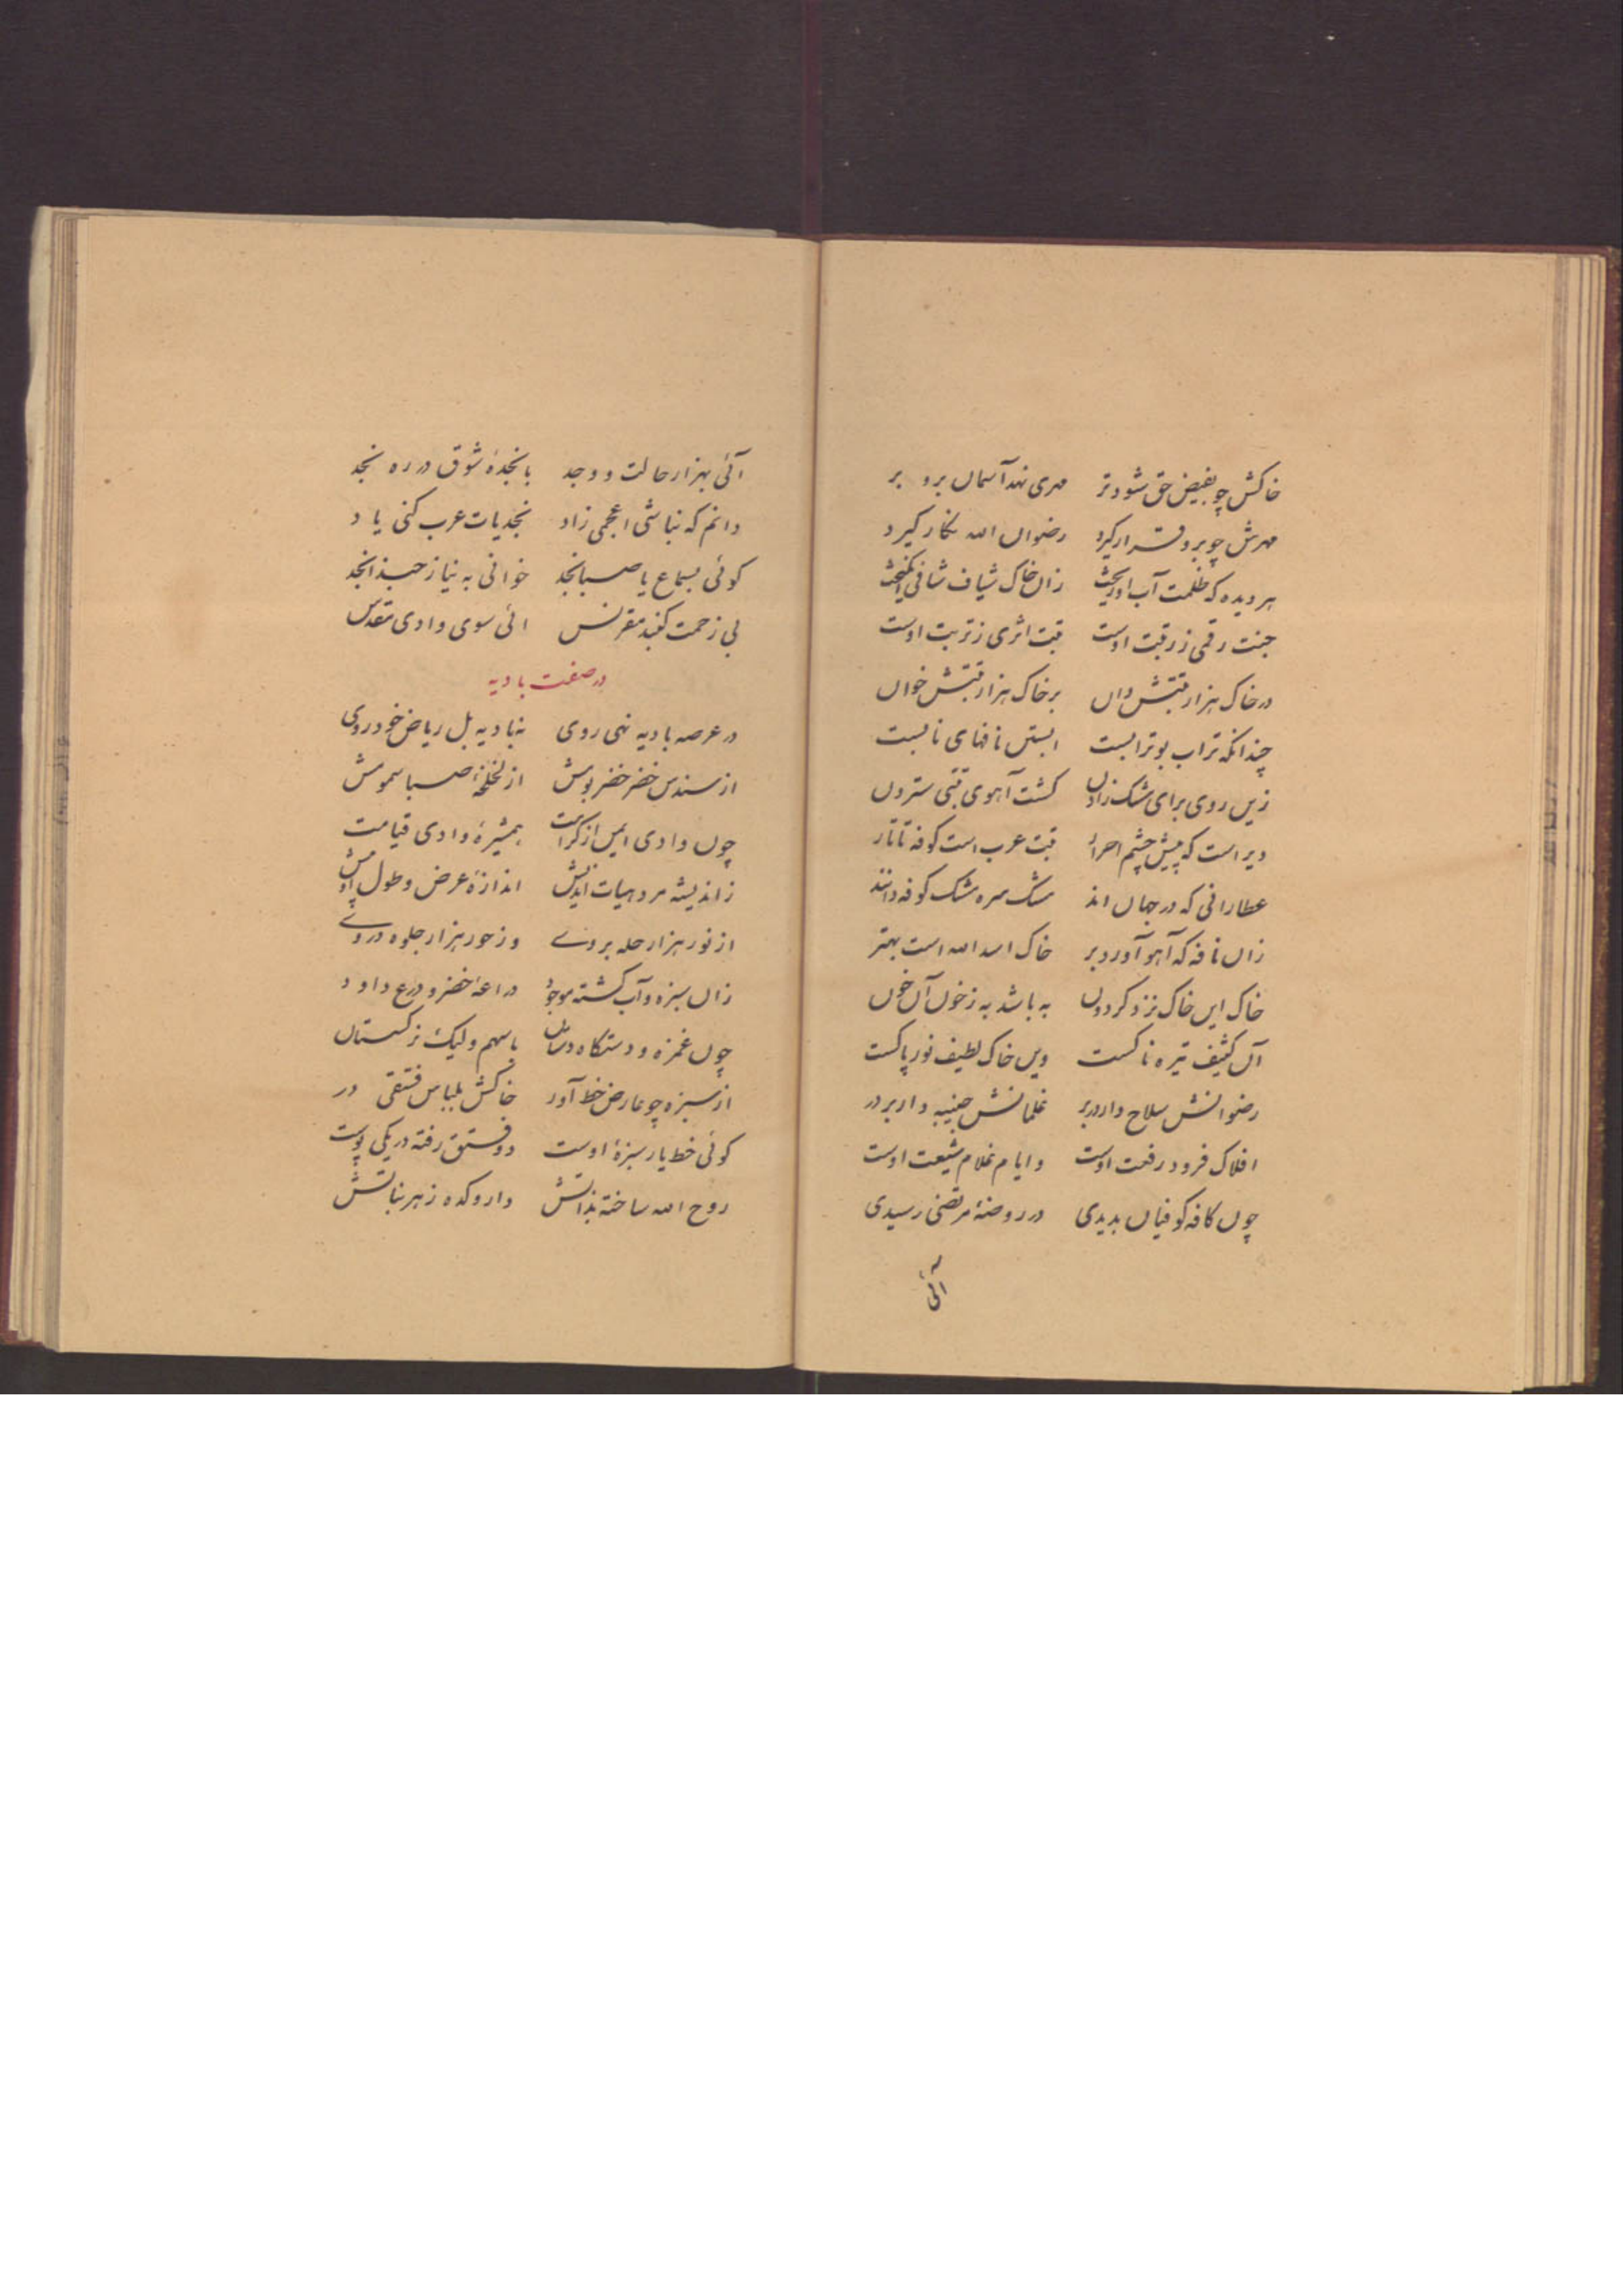 خاکش چو بفیض حق شود تر مهری نهد آسمان برو بر
مهرش چو برو قرار گیرد رضوان الله نگار گیرد
هر دیده که ظلمت آب او ریخت زان خاک شیاف شافی انگیخت
جنت رقمی ز رقبت اوست تبت اثری ز تربت اوست
در خاک هزار تبتش دان بر خاک هزار تبتش خوان
چندانکه تراب بوترابست ابستن نافهای نابست
زین روی برای مشک زادن گشت آهوی تبتی سترون
دیر است که پیش چشم احرار تبت عرب است کوفه تاتار
عطارانی که در جهان اند مشک سره مشک کوفه دانند
زان نافه که آهو آورد بر خاک اسد الله است بهتر
خاک این خاک نزد گردون به باشد به ز خون آن خون
آن کثیف تیره ناکست وین خاک لطیف نور پاکست
رضوانش سلاح دار در بر غلمانش جنیبه دار بر در
افلاک فرود رفعت اوست و ایام غلام شیعت اوست
چون کافه کوفیان بدیدی در روضهٔ مرتضی رسیدی
آئی
آئی بهزار حالت و وجد با نجدهٔ شوق در ره نجد
دانم که نباشی اعجمی زاد نجدیات عرب کنی یاد
گوئی بسماع یا صبا نجد خوانی به نیاز حبذا نجد
بی زحمت گنبد مقرنس ائی سوی وادی مقدس
در صفت بادیه
در عرصه بادیه نهی روی نه بادیه بل ریاض خودروی
از سندس خضر خضر پوش از لخلخهٔ صبا سمومش
چون وادی ایمن از کرامت همشیرهٔ وادی قیامت
ز اندیشه مرد هیات اندیش اندازهٔ عرض و طول او بیش
از نور هزار حله بروے وز حور هزار جلوه دروے
زان سبزه و آب گشته موجود دراعهٔ خضر و درع داود
چون غمزه و دستگاه دستان باسهم ولیک نرگستان
از سبزه چو عارض خط آور خاکش بلباس فستقی در
گوئی خط یار سبزهٔ اوست دو فستق رفته در یکی پوست
روح الله ساخته بذاتش داروکده ز هر نباتش